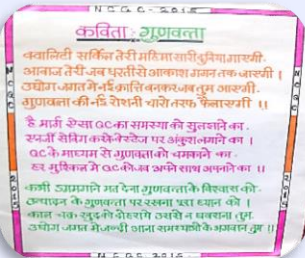 N C Q C - 2015
कविता : गुणवत्ता
क्वालिटी सर्किल तेरी महिमा सारी दुनिया गाएगी
आवाज तेरी जब धरती से आकाश गगन तक जाएगी ।
उद्योग जगत में नई क्रांति बनकर जब तुम आएगी
गुणवत्ता की नई रोशनी चारो तरफ फैलाएगी ॥
है मार्ग ऐसा QC का समस्या को सुलझाने का
स्पर्जी सेविंग करके वेस्टेज पर अंकुश लगाने का ।
QC के माध्यम से गुणवत्ता को चमकाने का
हर मुश्किल में QC को अपने साथ अपनाने का ॥
कभी डगमगाने मत देना गुणवत्ता के विश्वास को
उत्पादन के गुणवत्ता पर रखना पूरा ध्यान को ।
काल चक्र खुद को दोहराये उससे न घबराना तुम
उद्योग जगत में जल्दी आना समस्याओं के भगवान तुम ॥
N C Q C - 2015